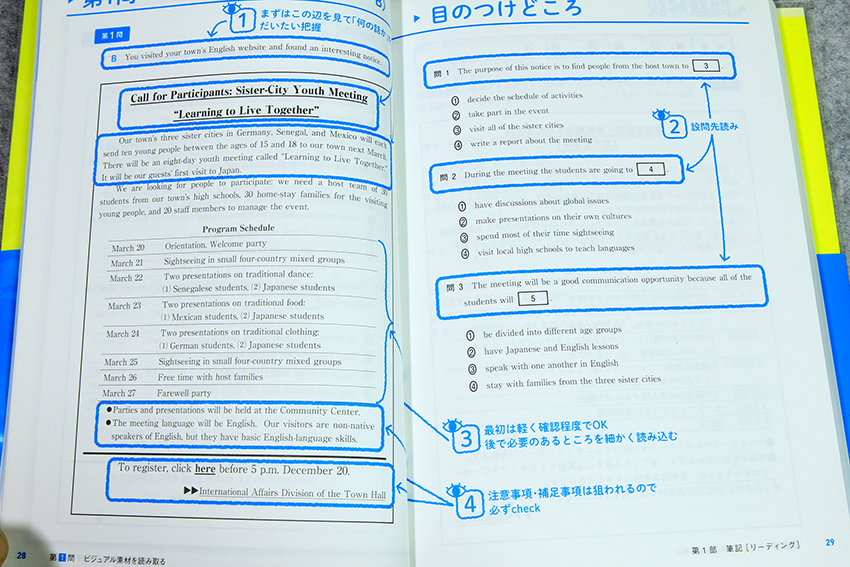 B)
1 まずはこの辺を見て「何の話か」
だいたい把握
第1問
B You visited your town's English website and found an interesting notice.
Call for Participants: Sister-City Youth Meeting
"Learning to Live Together"
Our town's three sister cities in Germany, Senegal, and Mexico will each
send ten young people between the ages of 15 and 18 to our town next March.
There will be an eight-day youth meeting called "Learning to Live Together."
It will be our guests' first visit to Japan.
We are looking for people to participate: we need a host team of 30
students from our town's high schools, 30 home-stay families for the visiting
young people, and 20 staff members to manage the event.
Program Schedule
March 20 Orientation, Welcome party
March 21 Sightseeing in small four-country mixed groups
March 22 Two presentations on traditional dance:
(1) Senegalese students, (2) Japanese students
March 23 Two presentations on traditional food:
(1) Mexican students, (2) Japanese students
March 24 Two presentations on traditional clothing:
(1) German students, (2) Japanese students
March 25 Sightseeing in small four-country mixed groups
March 26 Free time with host families
March 27 Farewell party
●Parties and presentations will be held at the Community Center.
●The meeting language will be English. Our visitors are non-native
speakers of English, but they have basic English-language skills.
To register, click here before 5 p.m. December 20.
▶▶International Affairs Division of the Town Hall
28 第1問 ビジュアル素材を読み取る
▶ 目のつけどころ
問1 The purpose of this notice is to find people from the host town to 3 .
① decide the schedule of activities
② take part in the event
③ visit all of the sister cities
④ write a report about the meeting
2 設問先読み
問2 During the meeting the students are going to 4 .
① have discussions about global issues
② make presentations on their own cultures
③ spend most of their time sightseeing
④ visit local high schools to teach languages
問3 The meeting will be a good communication opportunity because all of the
students will 5 .
① be divided into different age groups
② have Japanese and English lessons
③ speak with one another in English
④ stay with families from the three sister cities
3 最初は軽く確認程度でOK
後で必要のあるところを細かく読み込む
4 注意事項・補足事項は狙われるので
必ずcheck
第1部 筆記［リーディング］ 29